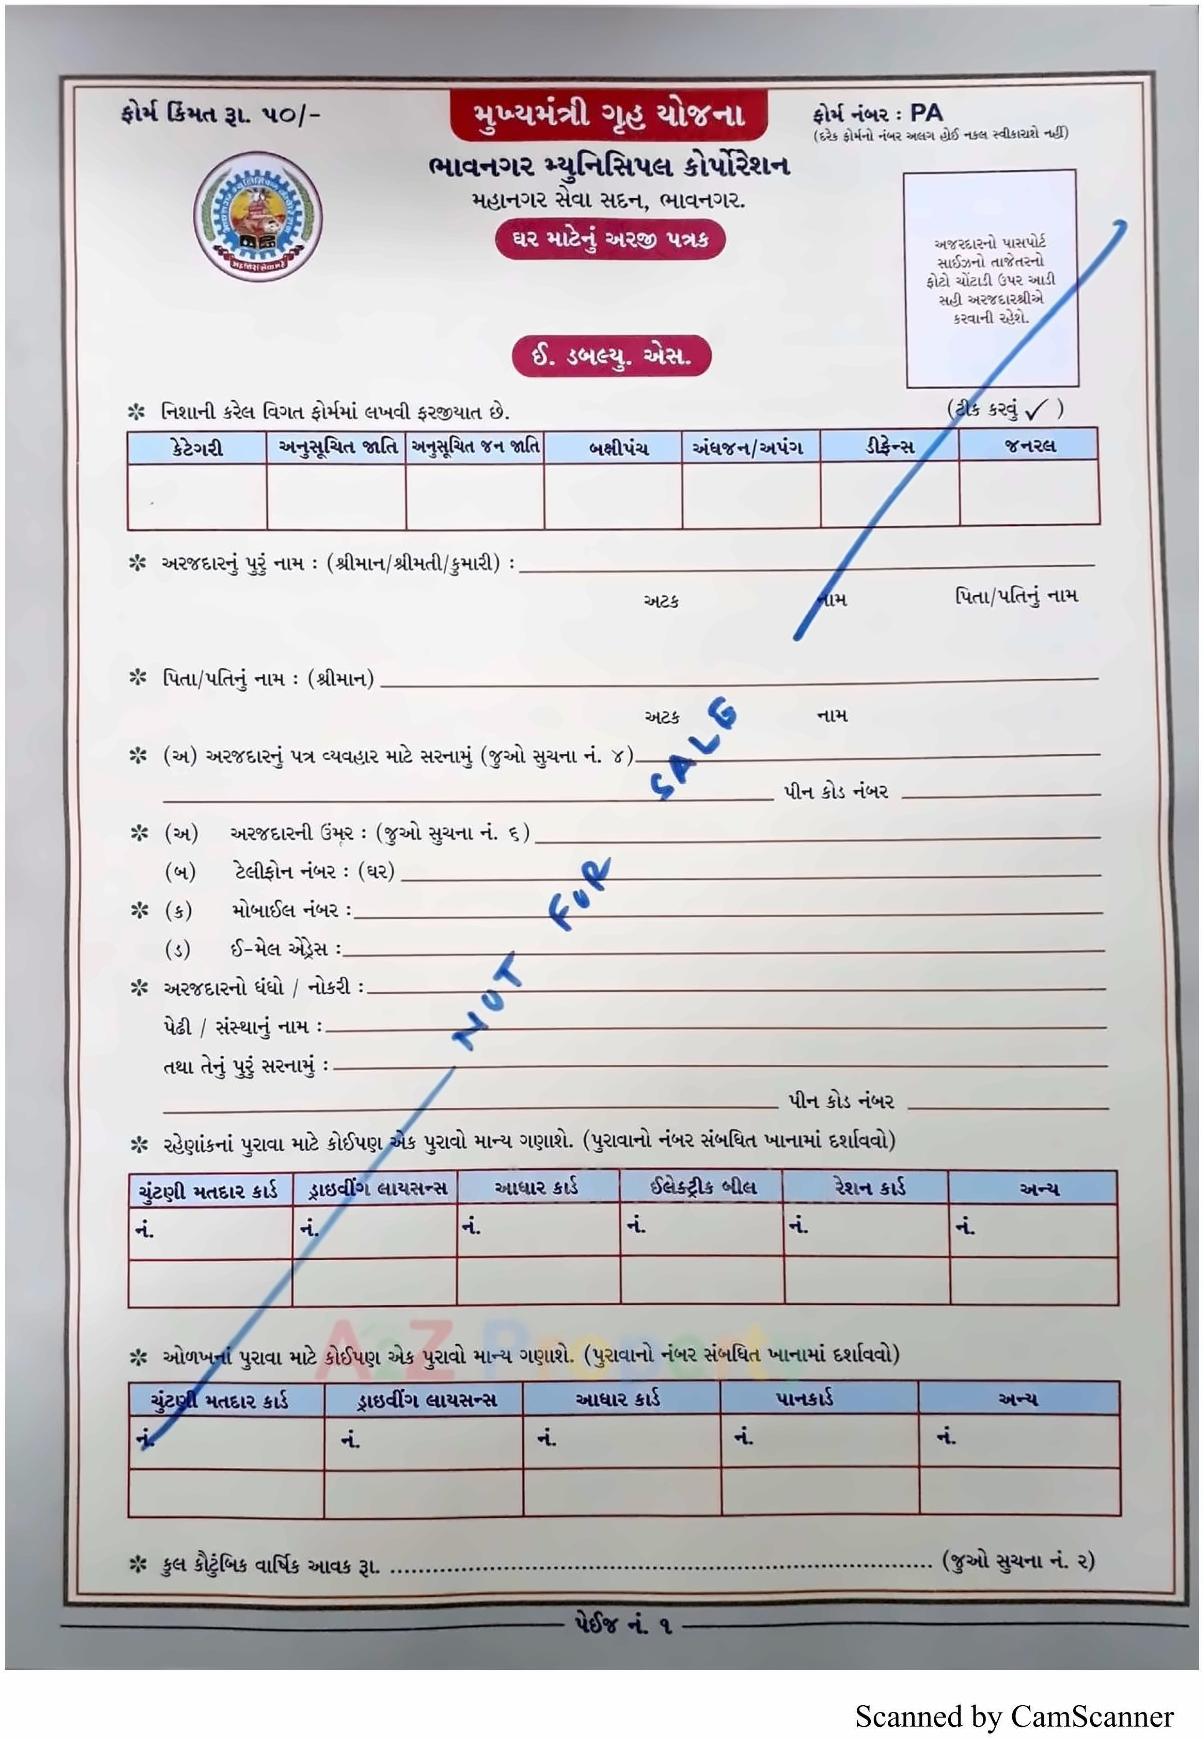 ફોર્મ કિંમત રૂા. ૫૦/-
મુખ્યમંત્રી ગૃહ યોજના
ફોર્મ નંબર : PA
(દરેક ફોર્મનો નંબર અલગ હોઈ નકલ સ્વીકારાશે નહીં)
ભાવનગર મ્યુનિસિપલ કોર્પોરેશન
મહાનગર સેવા સદન, ભાવનગર.
ઘર માટેનું અરજી પત્રક
અજરદારનો પાસપોર્ટ
સાઈઝનો તાજેતરનો
ફોટો ચોંટાડી ઉપર આડી
સહી અરજદારશ્રીએ
કરવાની રહેશે.
ઈ. ડબલ્યુ. એસ.
✼ નિશાની કરેલ વિગત ફોર્મમાં લખવી ફરજીયાત છે. (ટીક કરવું ✓ )
કેટેગરી અનુસૂચિત જાતિ અનુસૂચિત જન જાતિ બક્ષીપંચ અંધજન/અપંગ ડીફેન્સ જનરલ
✼ અરજદારનું પુરું નામ : (શ્રીમાન/શ્રીમતી/કુમારી) :
અટક નામ પિતા/પતિનું નામ
✼ પિતા/પતિનું નામ : (શ્રીમાન)
અટક નામ
✼ (અ) અરજદારનું પત્ર વ્યવહાર માટે સરનામું (જુઓ સુચના નં. ૪)
પીન કોડ નંબર
✼ (અ) અરજદારની ઉંમર : (જુઓ સુચના નં. ૬)
(બ) ટેલીફોન નંબર : (ઘર)
✼ (ક) મોબાઈલ નંબર :
(ડ) ઈ-મેલ એડ્રેસ :
✼ અરજદારનો ધંધો / નોકરી :
પેઢી / સંસ્થાનું નામ :
તથા તેનું પુરું સરનામું :
પીન કોડ નંબર
NOT FOR SALE
✼ રહેણાંકનાં પુરાવા માટે કોઈપણ એક પુરાવો માન્ય ગણાશે. (પુરાવાનો નંબર સંબધિત ખાનામાં દર્શાવવો)
ચુંટણી મતદાર કાર્ડ ડ્રાઇવીંગ લાયસન્સ આધાર કાર્ડ ઈલેક્ટ્રીક બીલ રેશન કાર્ડ અન્ય
નં. નં. નં. નં. નં. નં.
A2Z Property
✼ ઓળખનાં પુરાવા માટે કોઈપણ એક પુરાવો માન્ય ગણાશે. (પુરાવાનો નંબર સંબધિત ખાનામાં દર્શાવવો)
ચુંટણી મતદાર કાર્ડ ડ્રાઇવીંગ લાયસન્સ આધાર કાર્ડ પાનકાર્ડ અન્ય
નં. નં. નં. નં. નં.
✼ કુલ કૌટુંબિક વાર્ષિક આવક રૂા. .............................................................................. (જુઓ સુચના નં. ૨)
પેઈજ નં. ૧
Scanned by CamScanner